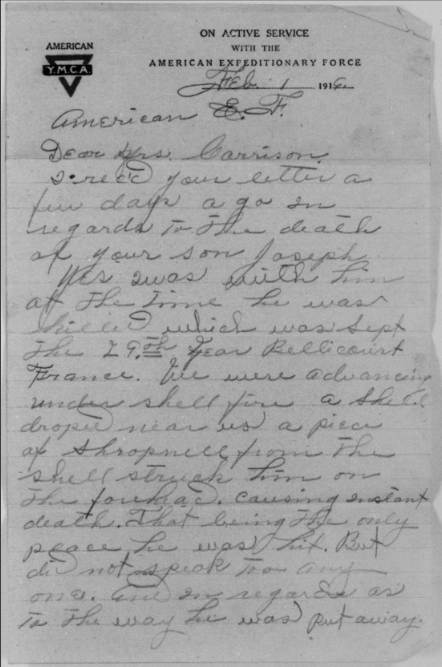 AMERICAN
Y.M.C.A
ON ACTIVE SERVICE
WITH THE
AMERICAN EXPEDITIONARY FORCE
Feb. 1 191
American E. F.
Dear Mrs. Garrison.
I recd your letter a
few days a go in
regards to the death
of your son Joseph.
Yes I was with him
at the time he was
killed which was Sept
the 29th near Bellicourt
France. We were advancing
under shell fire a shell
droped near us a piece
of shropnell from the
shell struck him on
the forehead. causing instant
death. That being the only
peace he was hit. But
did not speak too any
one. and in regards as
to the way he was put away.